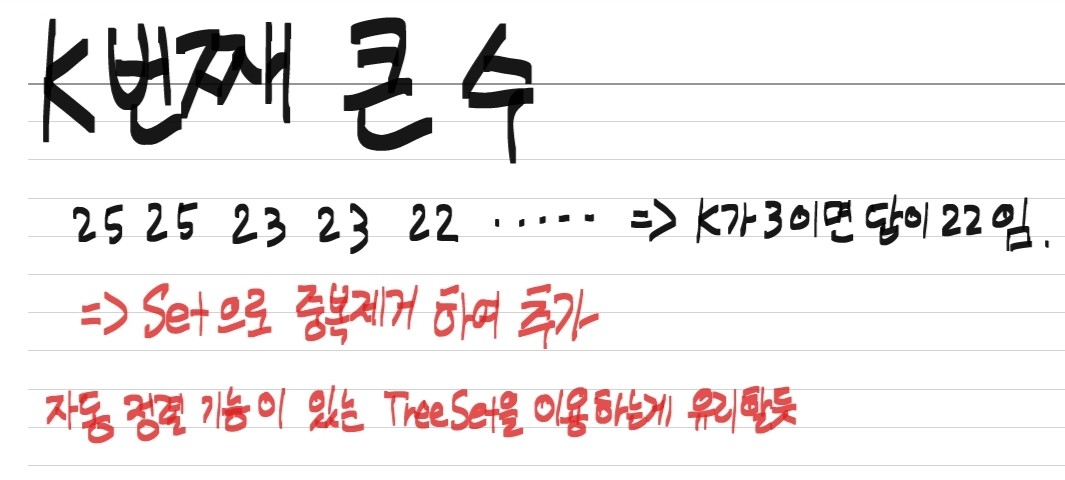 K번째 큰 수
25 25 23 23 22 ..... => K가 3이면 답이 22임.
=> Set으로 중복제거 하여 추가
자동 정렬 기능이 있는 TreeSet을 이용하는게 유리할듯